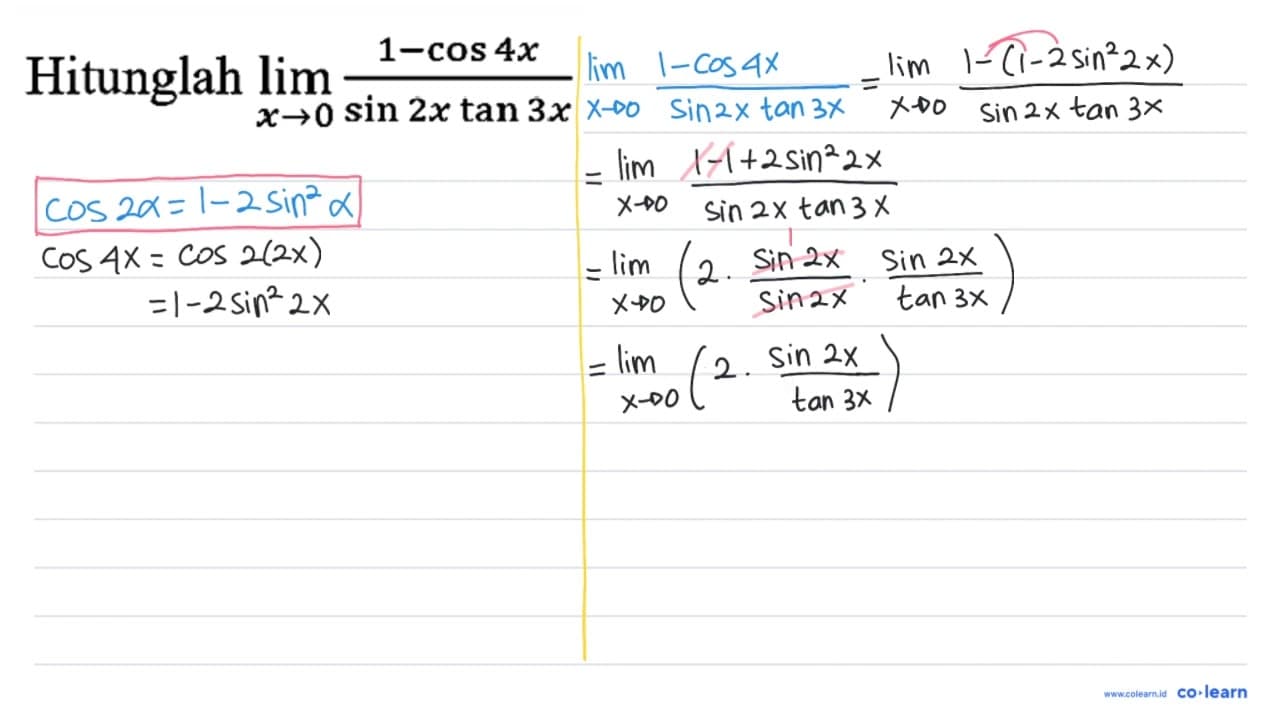 Hitunglah lim x→0 1−cos 4x / sin 2x tan 3x
cos 2α = 1 − 2 sin² α
cos 4x = cos 2(2x)
= 1 − 2 sin² 2x
lim x→0 1 − cos 4x / sin 2x tan 3x = lim x→0 1 − (1 − 2 sin² 2x) / sin 2x tan 3x
= lim x→0 1 − 1 + 2 sin² 2x / sin 2x tan 3x
= lim x→0 (2 · sin 2x / sin 2x 1 · sin 2x / tan 3x)
= lim x→0 (2 · sin 2x / tan 3x)
www.colearn.id co·learn